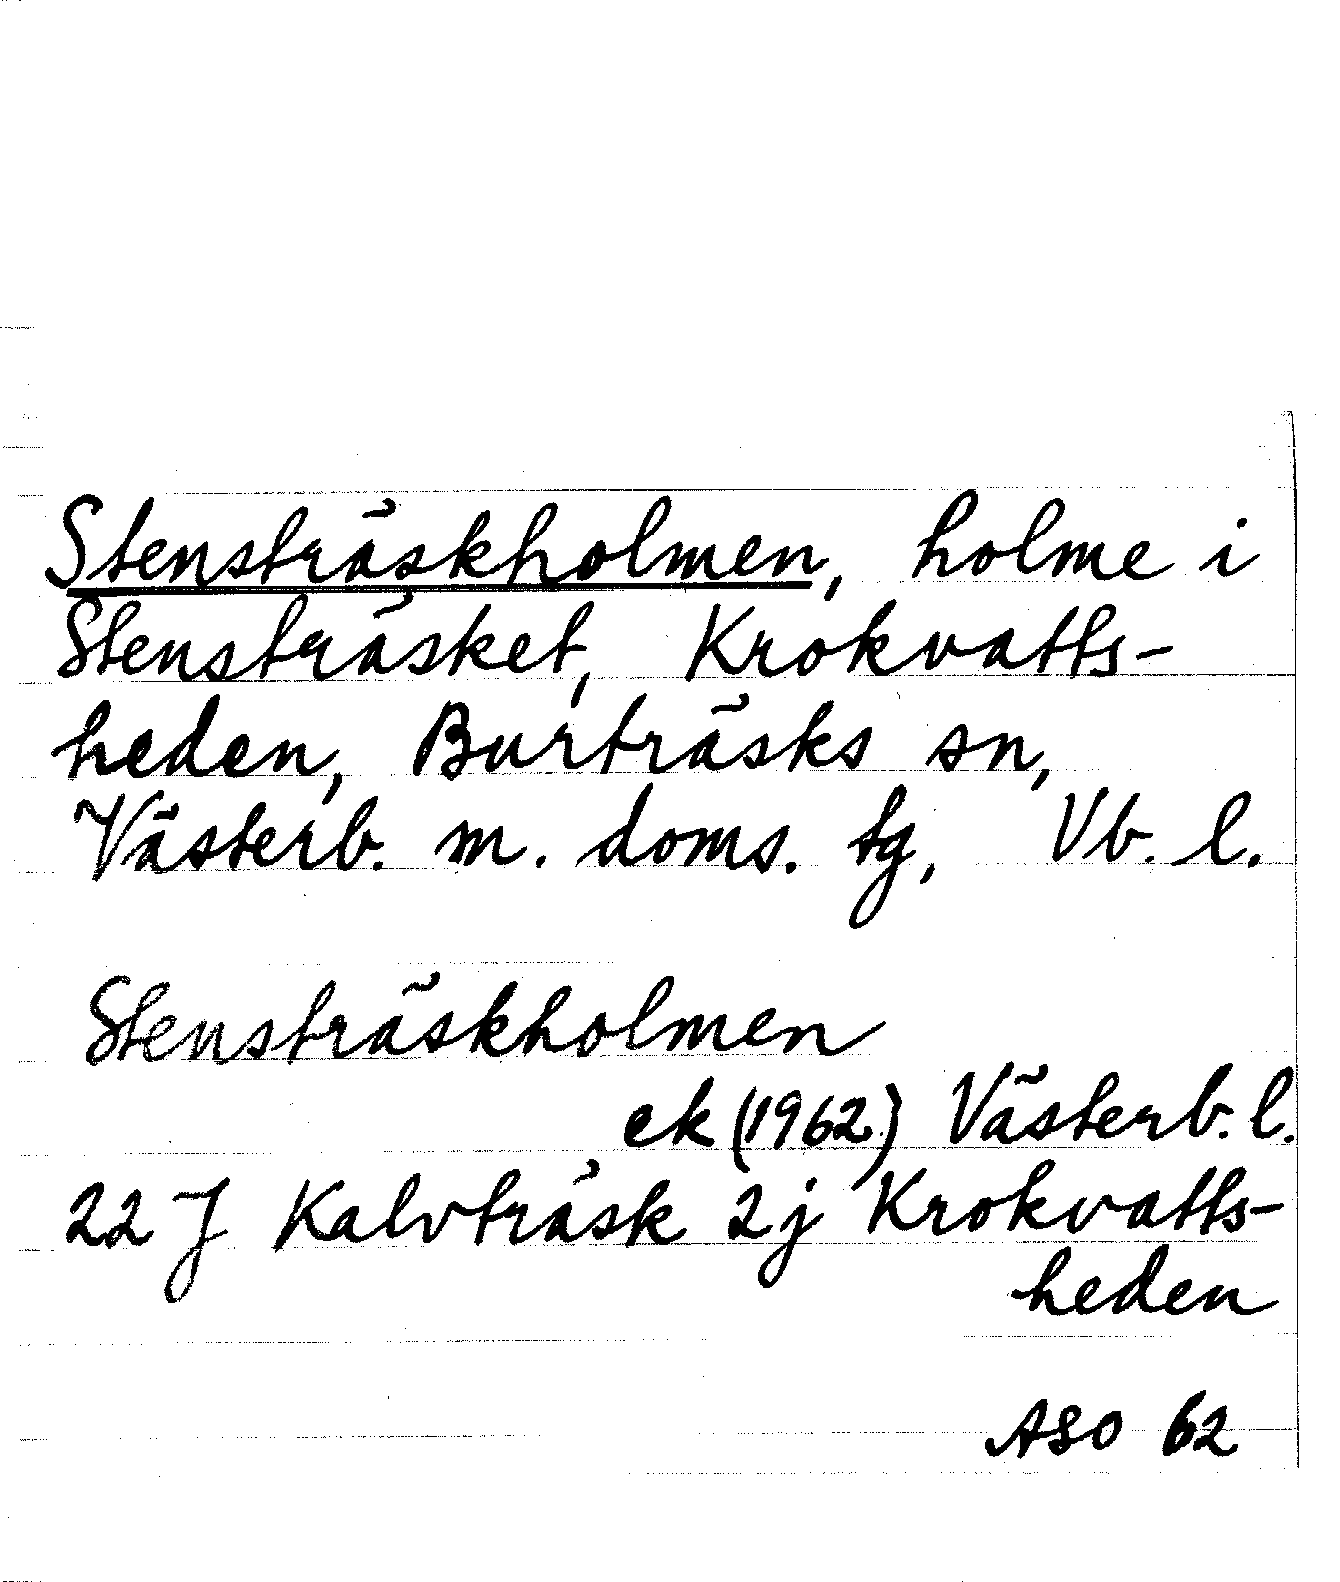 Stensträskholmen, holme i
Stensträsket, Krokvatts-
heden, Burträsks sn,
Västerb. m. doms. tg, Vb. l.
Stensträskholmen
ek (1962) Västerb. l.
22 J Kalvträsk 2j Krokvatts-
heden
ASO 62